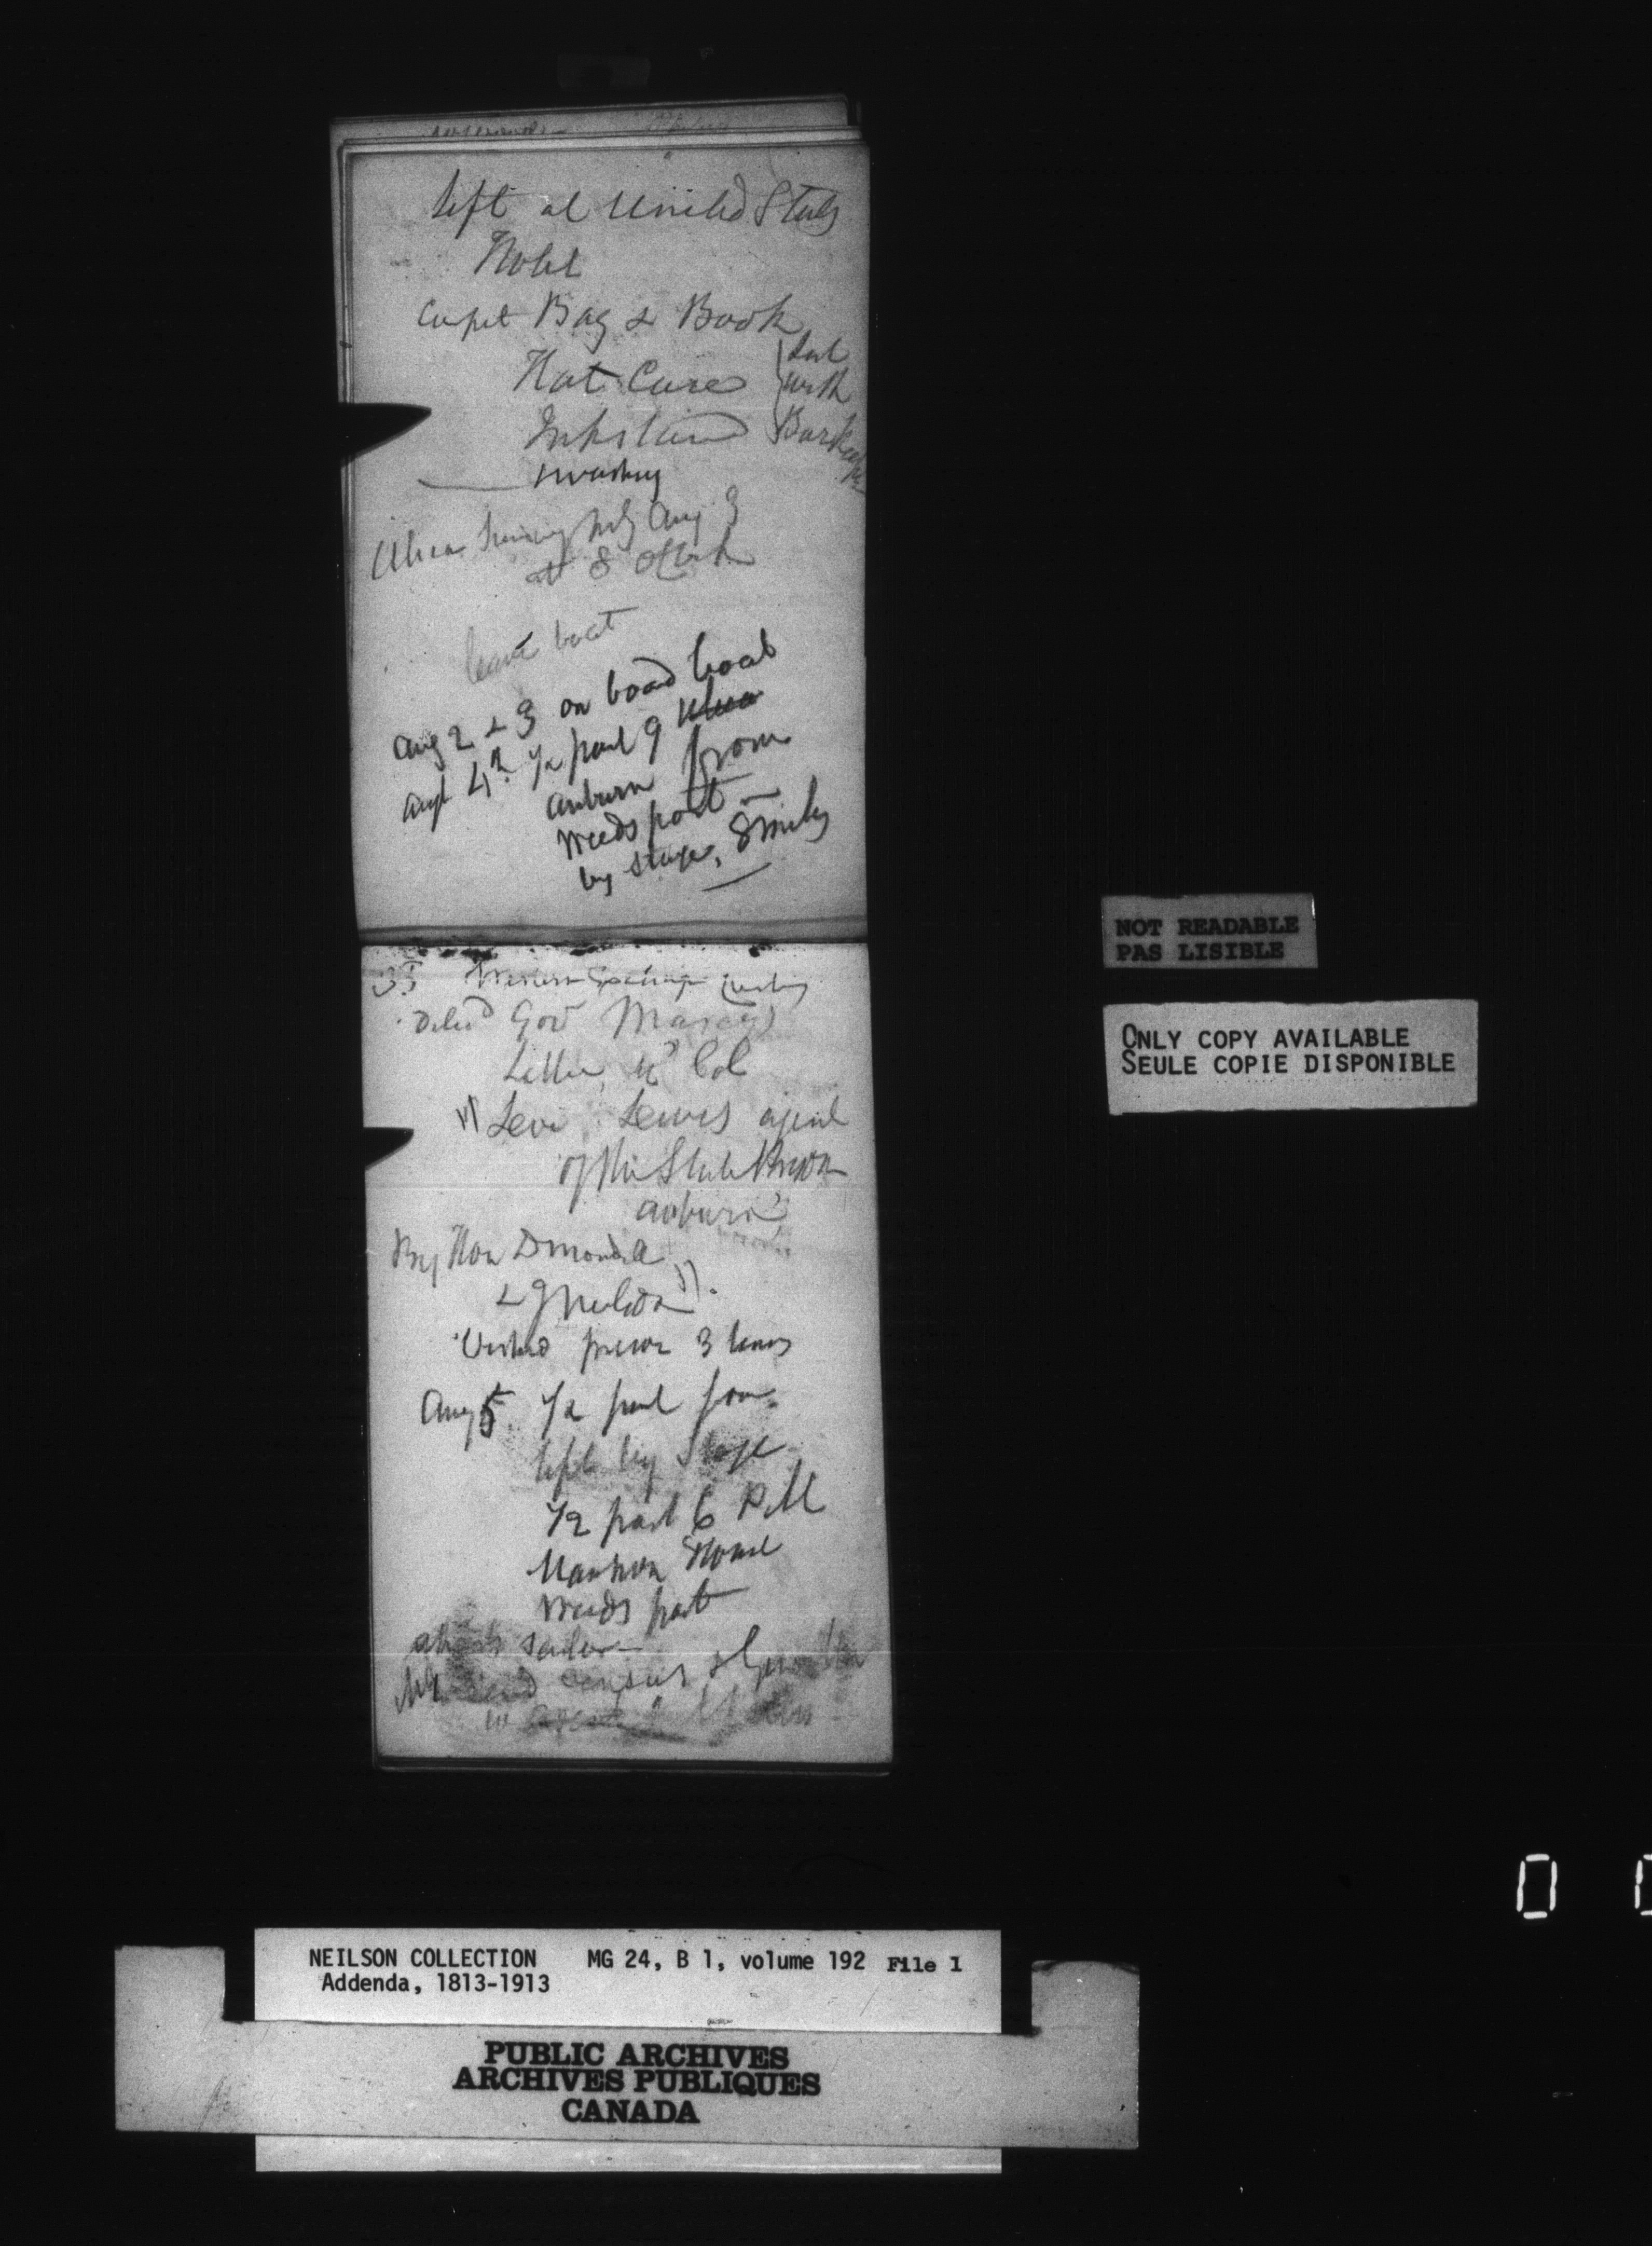 left at United States
Hotel
Carpet Bag & Book
Hat Case
Inkstand
} Left
with
Barkeeper
& washing
Utica Aug 3
at 8 oClock
leave boat
Aug 2 & 3 on board boat
Augt 4th ½ past 9 Utica
Auburn from
Weedsport —
by Stage, 8 miles
Western Exchange
Delid Gov Marcys
Letter to Col
"Levi Lewis agent
of the State Prison
Auburn
By Hon D Mondelet
& J Neilson".
Visited prison 3 times
Aug 5. ½ past four
left by Stage
½ past 6 P.M
Mansion House
Weeds port
send census &
NOT READABLE
PAS LISIBLE
ONLY COPY AVAILABLE
SEULE COPIE DISPONIBLE
0
NEILSON COLLECTION MG 24, B 1, volume 192 File 1
Addenda, 1813-1913
PUBLIC ARCHIVES
ARCHIVES PUBLIQUES
CANADA